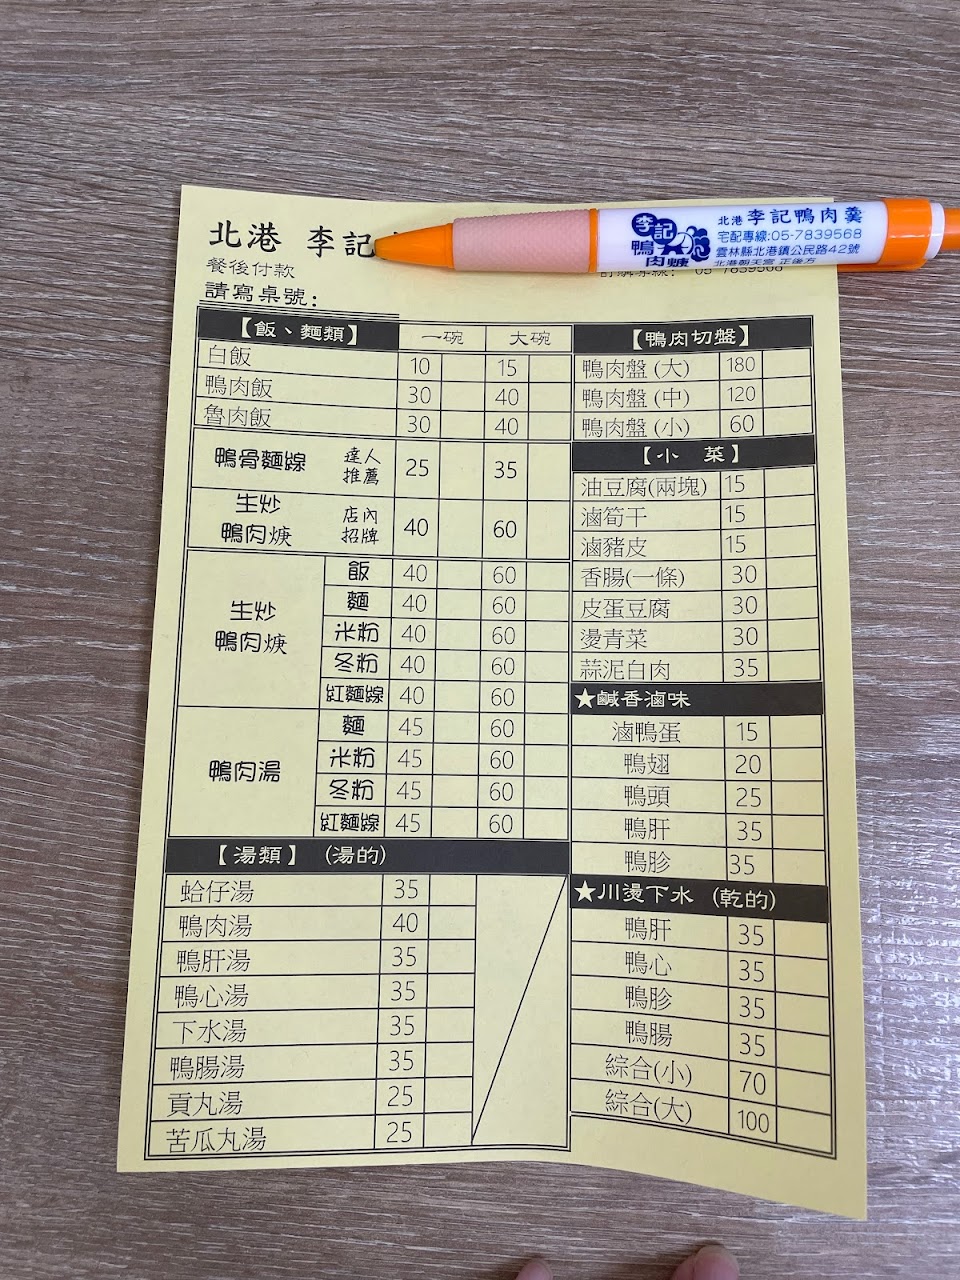 北港 李記
餐後付款
請寫桌號：
李記
鴨
肉焿
北港 李記鴨肉羹
宅配專線:05-7839568
雲林縣北港鎮公民路42號
北港朝天宮 正後方
05 7839568
【飯、麵類】 一碗 大碗
白飯 10 15
鴨肉飯 30 40
魯肉飯 30 40
鴨骨麵線 達人推薦 25 35
生炒鴨肉焿 店內招牌 40 60
生炒鴨肉焿
飯 40 60
麵 40 60
米粉 40 60
冬粉 40 60
紅麵線 40 60
鴨肉湯
麵 45 60
米粉 45 60
冬粉 45 60
紅麵線 45 60
【湯類】 (湯的)
蛤仔湯 35
鴨肉湯 40
鴨肝湯 35
鴨心湯 35
下水湯 35
鴨腸湯 35
貢丸湯 25
苦瓜丸湯 25
【鴨肉切盤】
鴨肉盤 (大) 180
鴨肉盤 (中) 120
鴨肉盤 (小) 60
【小 菜】
油豆腐(兩塊) 15
滷筍干 15
滷豬皮 15
香腸(一條) 30
皮蛋豆腐 30
燙青菜 30
蒜泥白肉 35
★鹹香滷味
滷鴨蛋 15
鴨翅 20
鴨頭 25
鴨肝 35
鴨胗 35
★川燙下水 (乾的)
鴨肝 35
鴨心 35
鴨胗 35
鴨腸 35
綜合(小) 70
綜合(大) 100